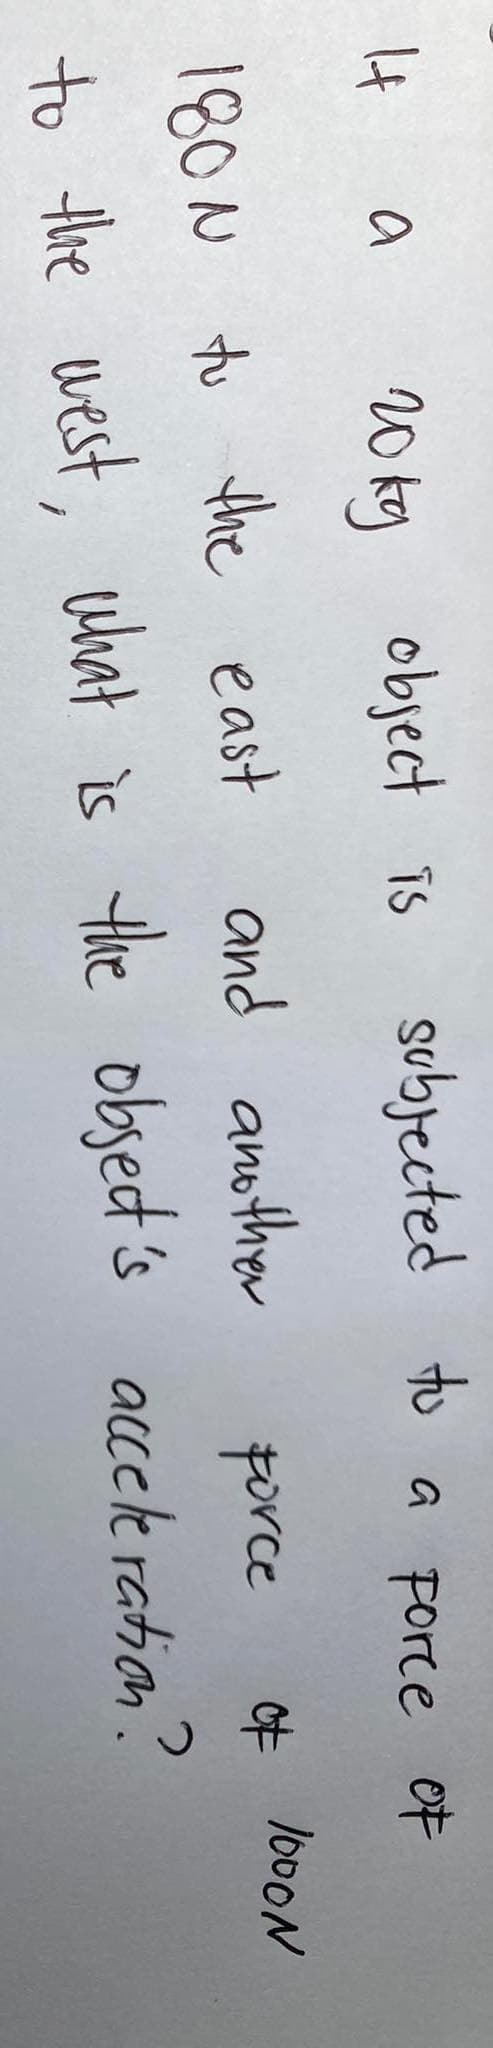 If a 20kg object is subjected to a force of
180N to the east and another force of 1000N
to the west, what is the object's acceleration?